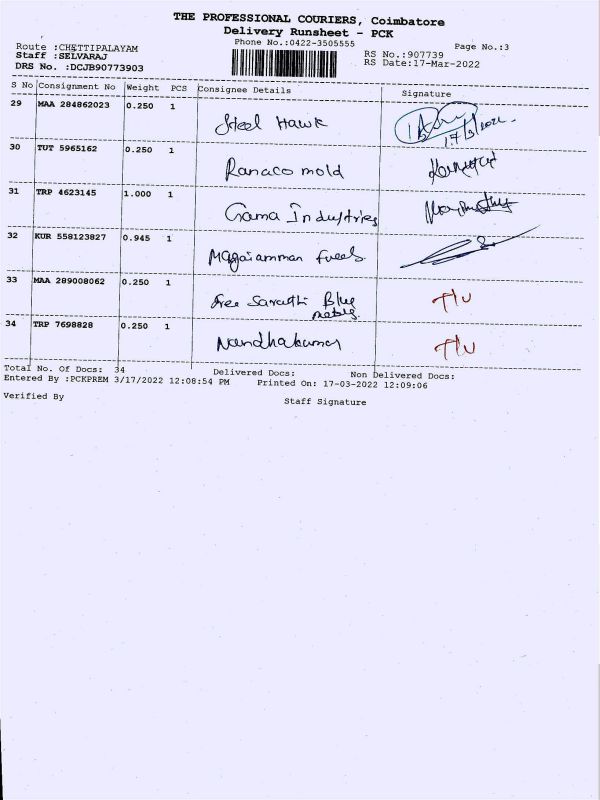 THE PROFESSIONAL COURIERS, Coimbatore
Delivery Runsheet - PCK
Phone No.:0422-3505555
Page No.:3
Route :CHETTIPALAYAM
Staff :SELVARAJ
DRS No. :DCJB90773903
RS No.:907739
RS Date:17-Mar-2022
S No Consignment No Weight PCS Consignee Details Signature
29 MAA 284862023 0.250 1 Steel Hawk
17/3/2022
30 TUT 5965162 0.250 1 Ranaco mold
31 TRP 4623145 1.000 1 Gama Industries
32 KUR 558123827 0.945 1 Magaiamman fuels
33 MAA 289008062 0.250 1 Sree Sarathi Blue T/U
34 TRP 7698828 0.250 1 Nandhakumar T/U
Total No. Of Docs: 34 Delivered Docs: Non Delivered Docs:
Entered By :PCKPREM 3/17/2022 12:08:54 PM Printed On: 17-03-2022 12:09:06
Verified By Staff Signature